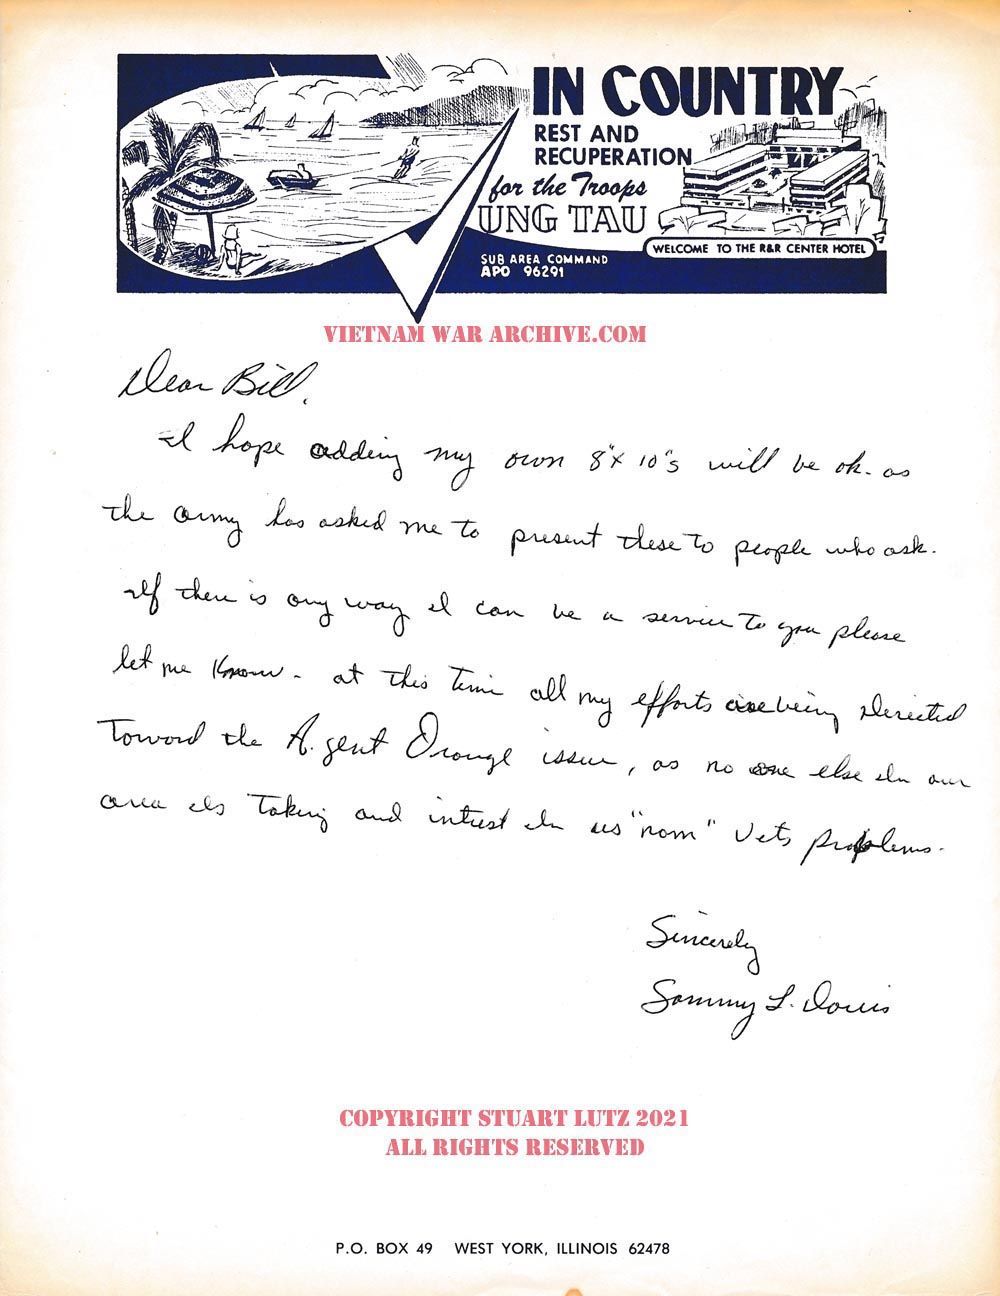 IN COUNTRY
REST AND
RECUPERATION
for the Troops
UNG TAU
WELCOME TO THE R&R CENTER HOTEL
SUB AREA COMMAND
APO 96291
VIETNAM WAR ARCHIVE.COM
Dear Bill,
I hope adding my own 8"x 10"s will be ok. as
the army has asked me to present these to people who ask.
If there is any way I can be a service to you please
let me know - at this time all my efforts are being directed
Toward the Agent Orange issue, as no one else In our
area Is Taking and intrest In us "nam" Vets problems.
Sincerely
Sammy L. Davis
COPYRIGHT STUART LUTZ 2021
ALL RIGHTS RESERVED
P.O. BOX 49 WEST YORK, ILLINOIS 62478